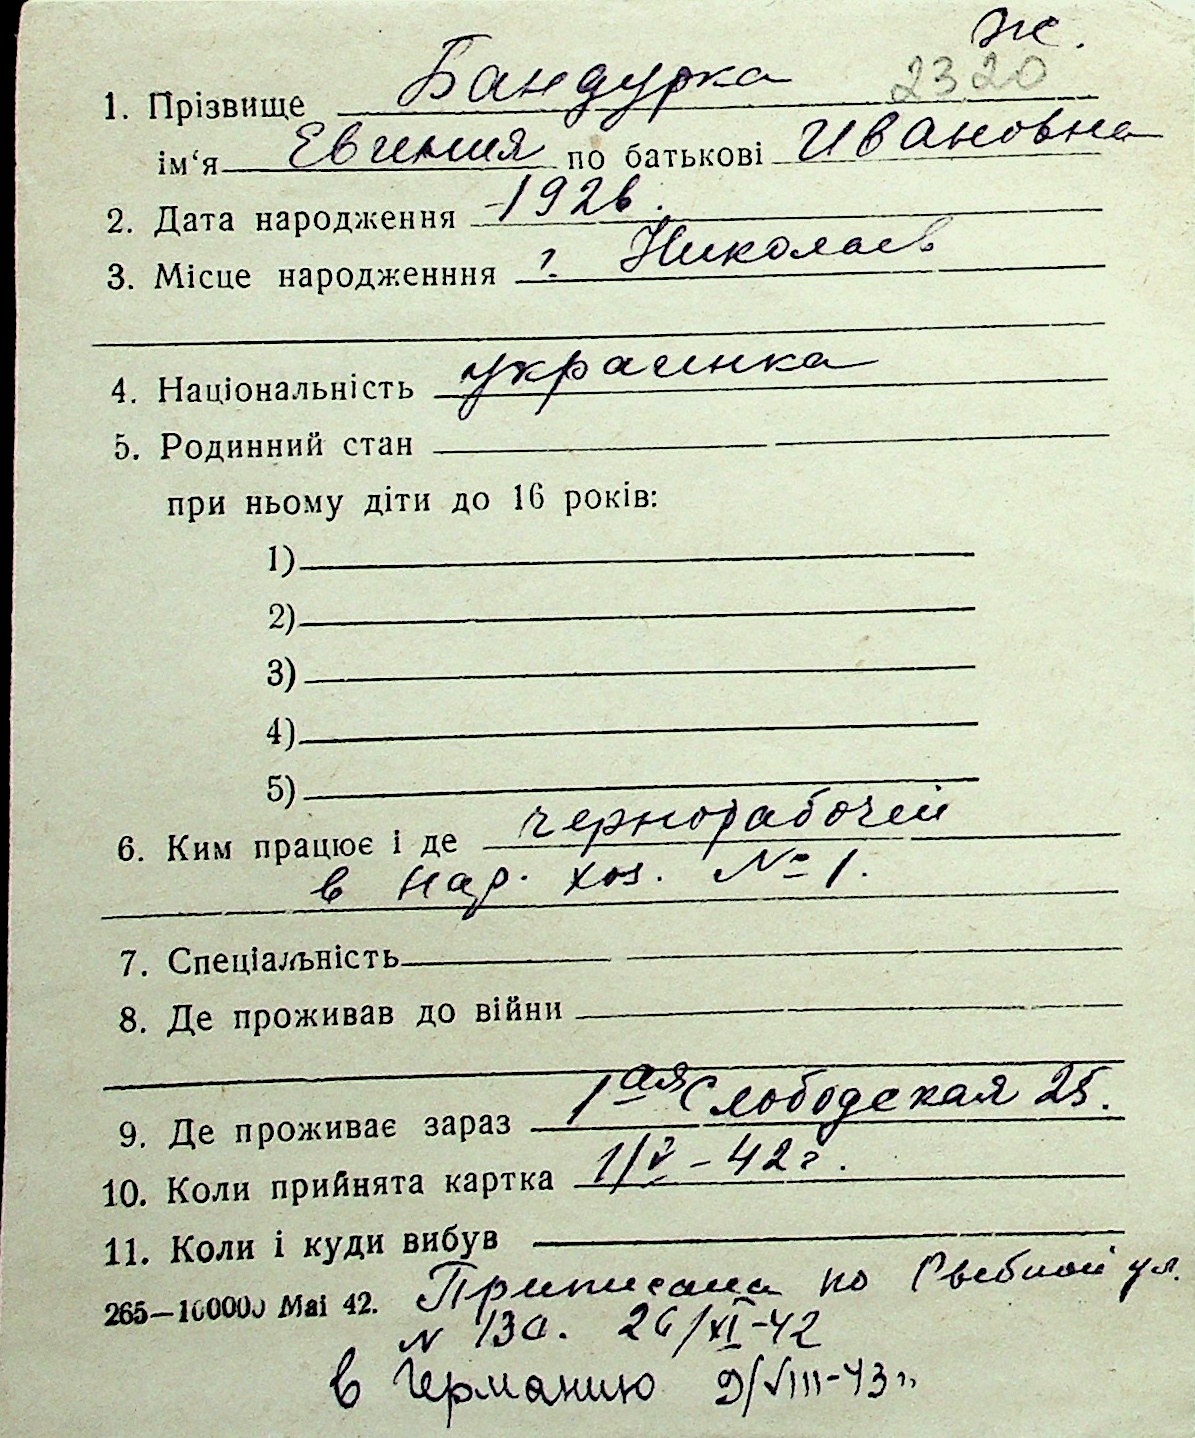 ж.
2320
1. Прізвище Бандурка
ім'я Евгения по батькові Ивановна
2. Дата народження 1926.
3. Місце народженння г. Николаев
4. Національність украинка
5. Родинний стан
при ньому діти до 16 років:
1)
2)
3)
4)
5)
6. Ким працює і де чернорабочей
в нар. хоз. № 1.
7. Спеціальність
8. Де проживав до війни
9. Де проживає зараз 1ая Слободская 25.
10. Коли прийнята картка 1/V – 42 г.
11. Коли і куди вибув
265—100000 Mai 42. Приписана по ул.
N 13а. 26/XI-42
в Германию 9/VIII-43 г.